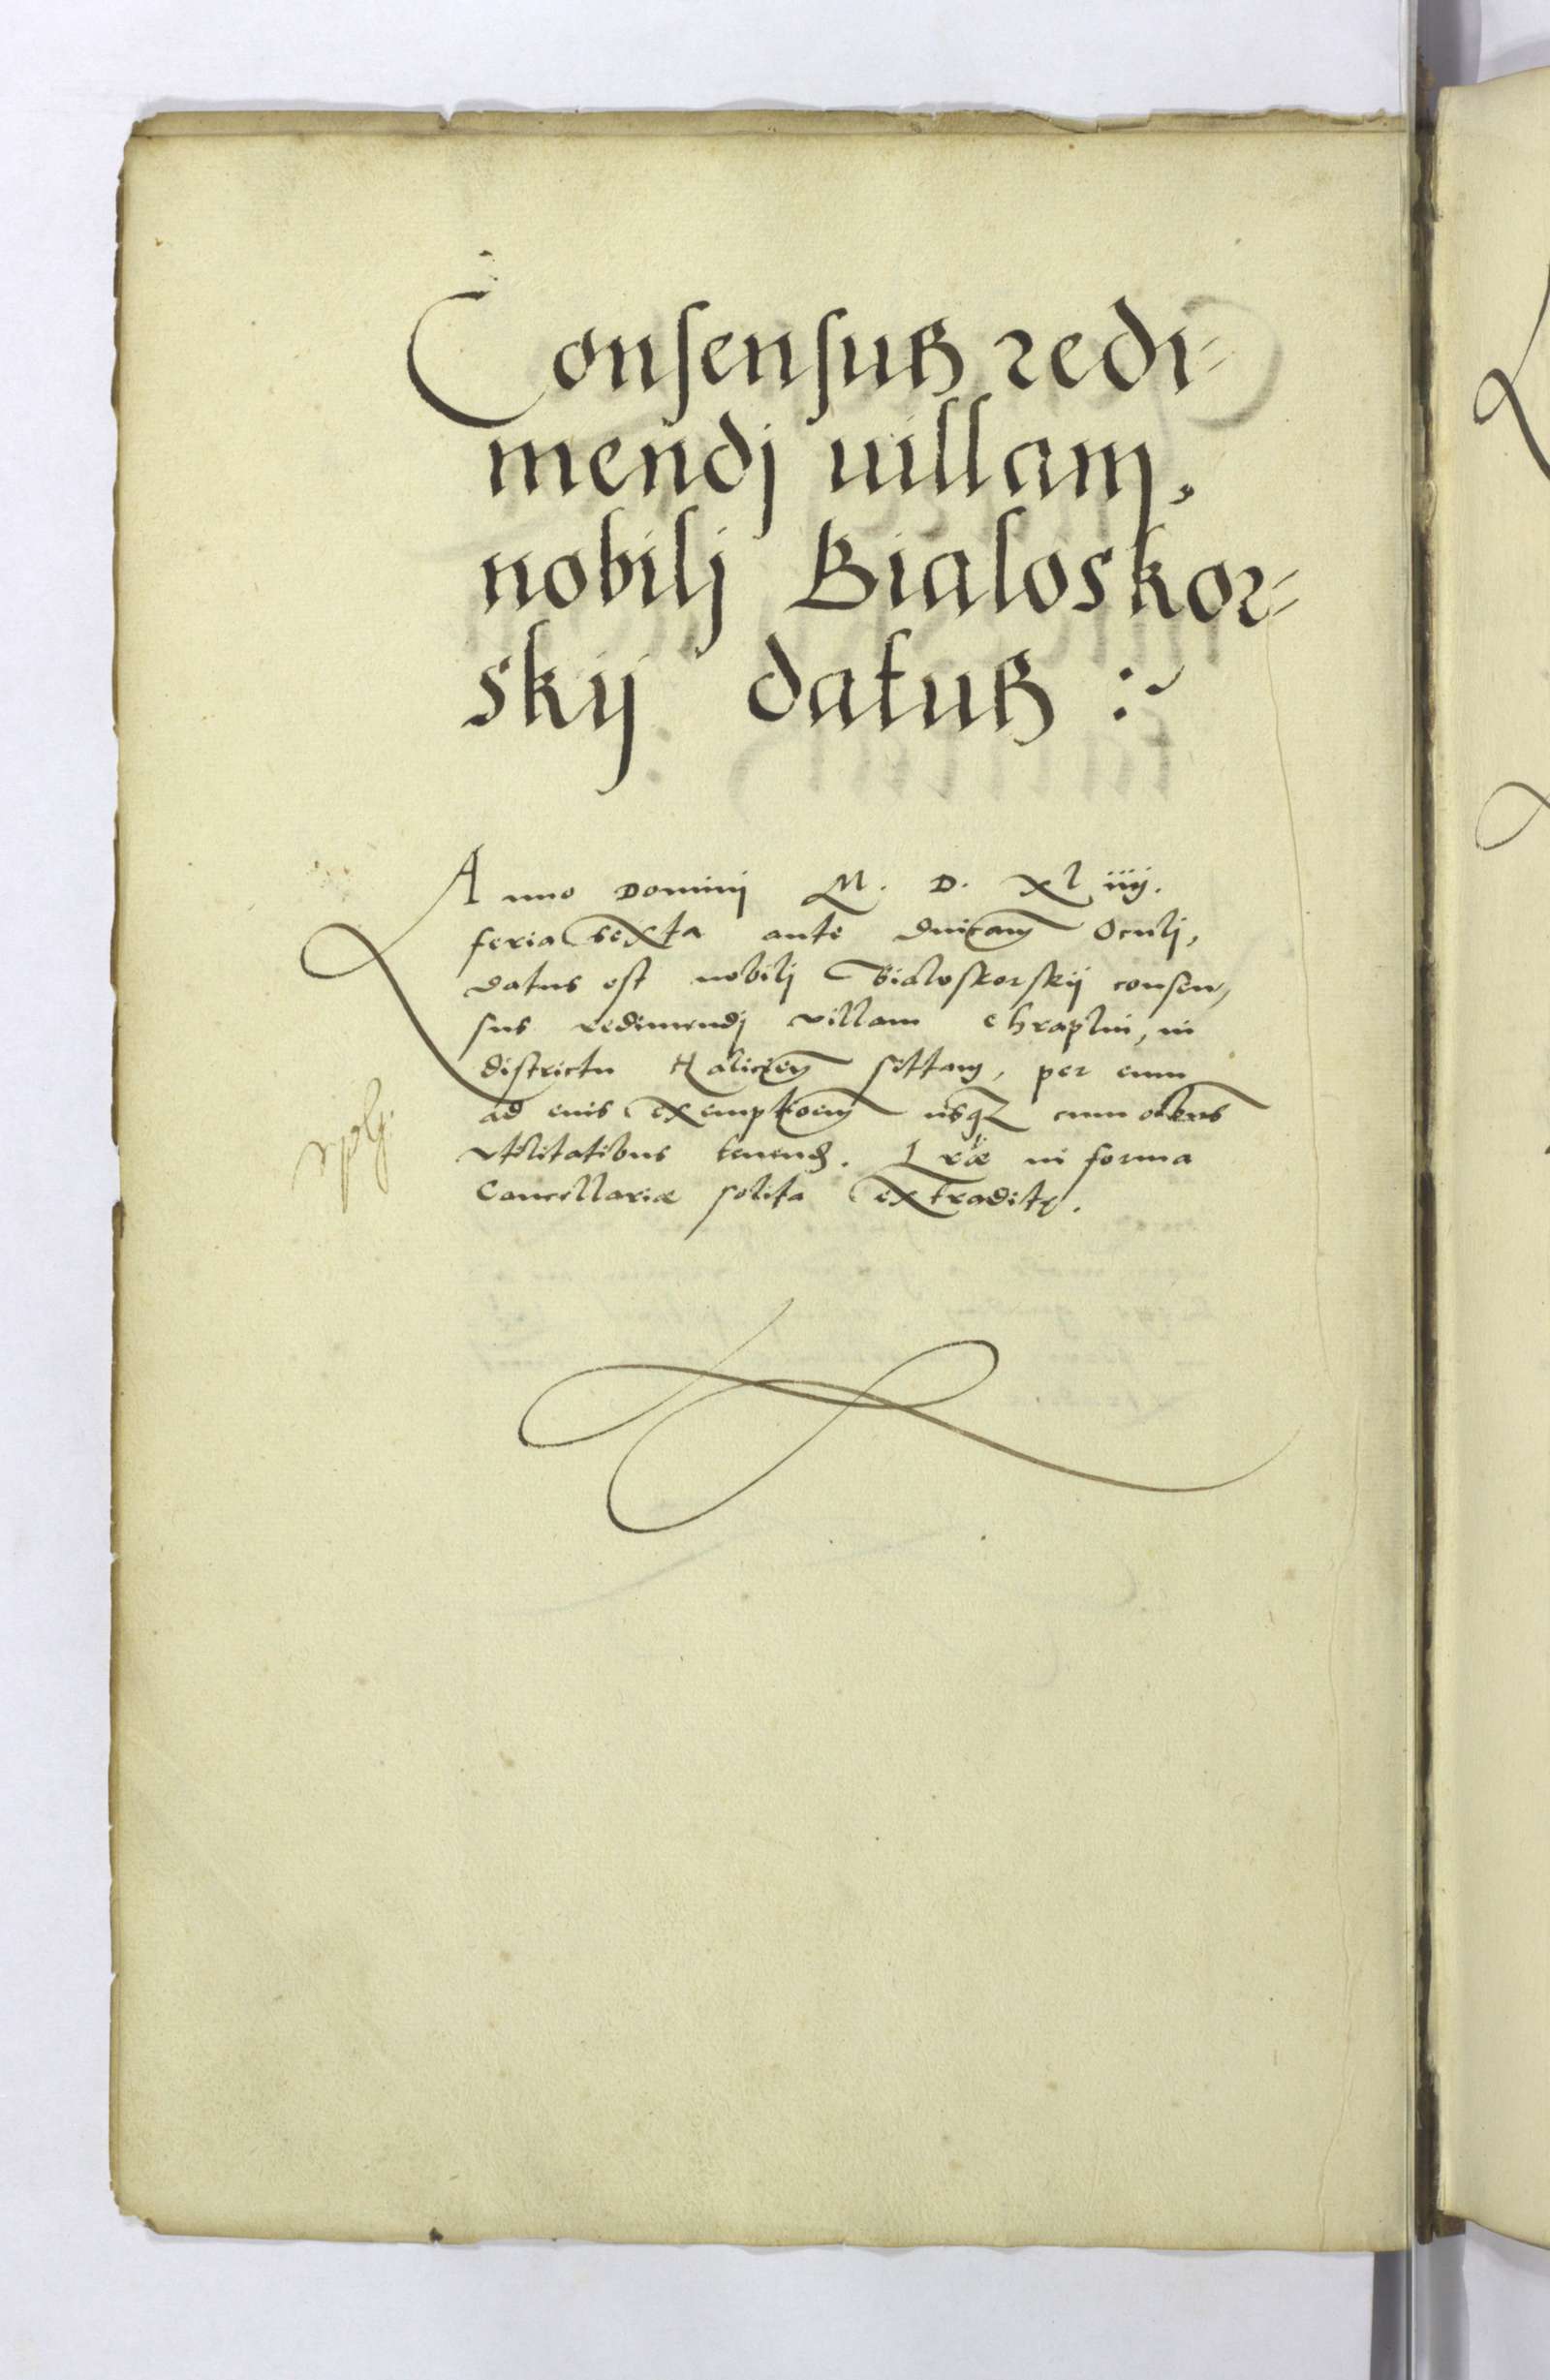 Consensus redi=
mendj uillam,
nobilj Bialoskor=
skij datus :~
Anno Dominj M. D. Xl iiij.
feria sexta ante dnicam Oculj,
datus est nobilj Bialoskorskij consen,
sus redimendj villam Chraplin, in
districtu Halicien sittam, per eum
ad euis exemptioem usq3 cum oibus
vtilitatibus tenend. Lrae in forma
Cancellariae solita extradite.